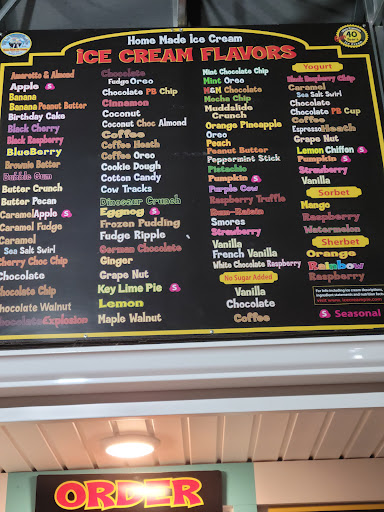 Home Made Ice Cream
ICE CREAM FLAVORS
40
Amaretto & Almond
Apple S
Banana
Banana Peanut Butter
Birthday Cake
Black Cherry
Black Raspberry
BlueBerry
Brownie Batter
Bubble Gum
Butter Crunch
Butter Pecan
CaramelApple S
Caramel Fudge
Caramel
Sea Salt Swirl
Cherry Choc Chip
Chocolate
Chocolate Chip
Chocolate Walnut
Chocolate Explosion
Chocolate
Fudge Oreo
Chocolate PB Chip
Cinnamon
Coconut
Coconut Choc Almond
Coffee
Coffee Heath
Coffee Oreo
Cookie Dough
Cotton Candy
Cow Tracks
Dinosaur Crunch
Eggnog S
Frozen Pudding
Fudge Ripple
German Chocolate
Ginger
Grape Nut
Key Lime Pie S
Lemon
Maple Walnut
Mint Chocolate Chip
Mint Oreo
M&M Chocolate
Mocha Chip
Muddslide
Crunch
Orange Pineapple
Oreo
Peach
Peanut Butter
Peppermint Stick
Pistachio
Pumpkin S
Purple Cow
Raspberry Truffle
Rum-Raisin
Smores
Strawberry
Vanilla
French Vanilla
White Chocolate Raspberry
No Sugar Added
Vanilla
Chocolate
Coffee
Yogurt
Black Raspberry Chip
Caramel
Sea Salt Swirl
Chocolate
Chocolate PB Cup
Coffee
EspressoHeath
Grape Nut
Lemon Chiffon S
Pumpkin S
Strawberry
Vanilla
Sorbet
Mango
Raspberry
Watermelon
Sherbet
Orange
Rainbow
Raspberry
For info including ice cream descriptions,
ingredient statements and nutrition facts
S Seasonal
ORDER